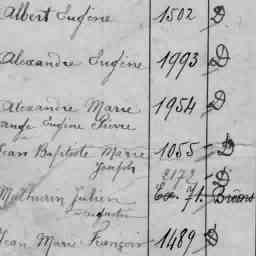 Albert Eugène 1502 D
Alexandre Eugène 1993 D
Alexandre Marie 1954 D
ange Eugène Pierre
Jean Baptiste Marie 1055 D
Joseph
2172 D
Mathurin Julien Ex. 71.
Jean Marie François 1489 D